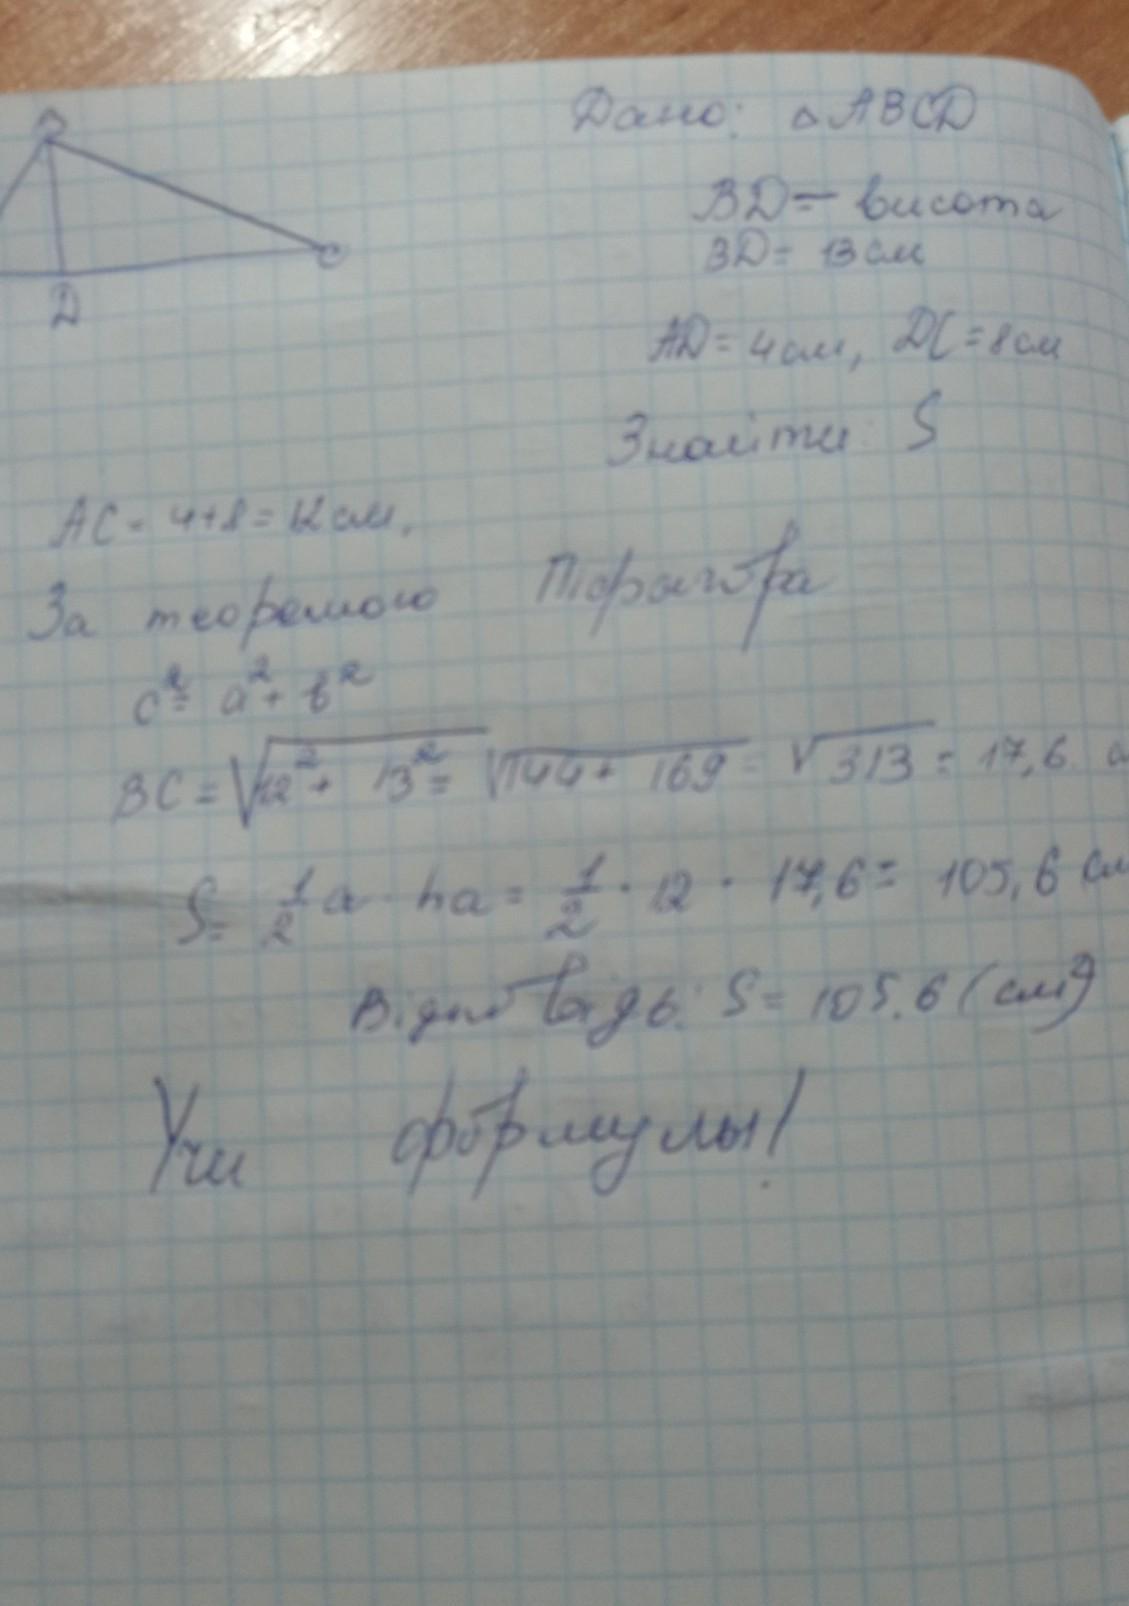 Дано: △ABCD
B
BD = – висота
BD = 13 см
C
D
AD = 4 см, DC = 8 см
Знайти: S
AC = 4+8 = 12 см.
За теоремою Піфагора
c² = a² + b²
BC = √12² + 13² = √144 + 169 = √313 = 17,6
S = 1/2 a · ha = 1/2 · 12 · 17,6 = 105,6 см
Відповідь: S = 105.6 (см²)
Учи формулы!